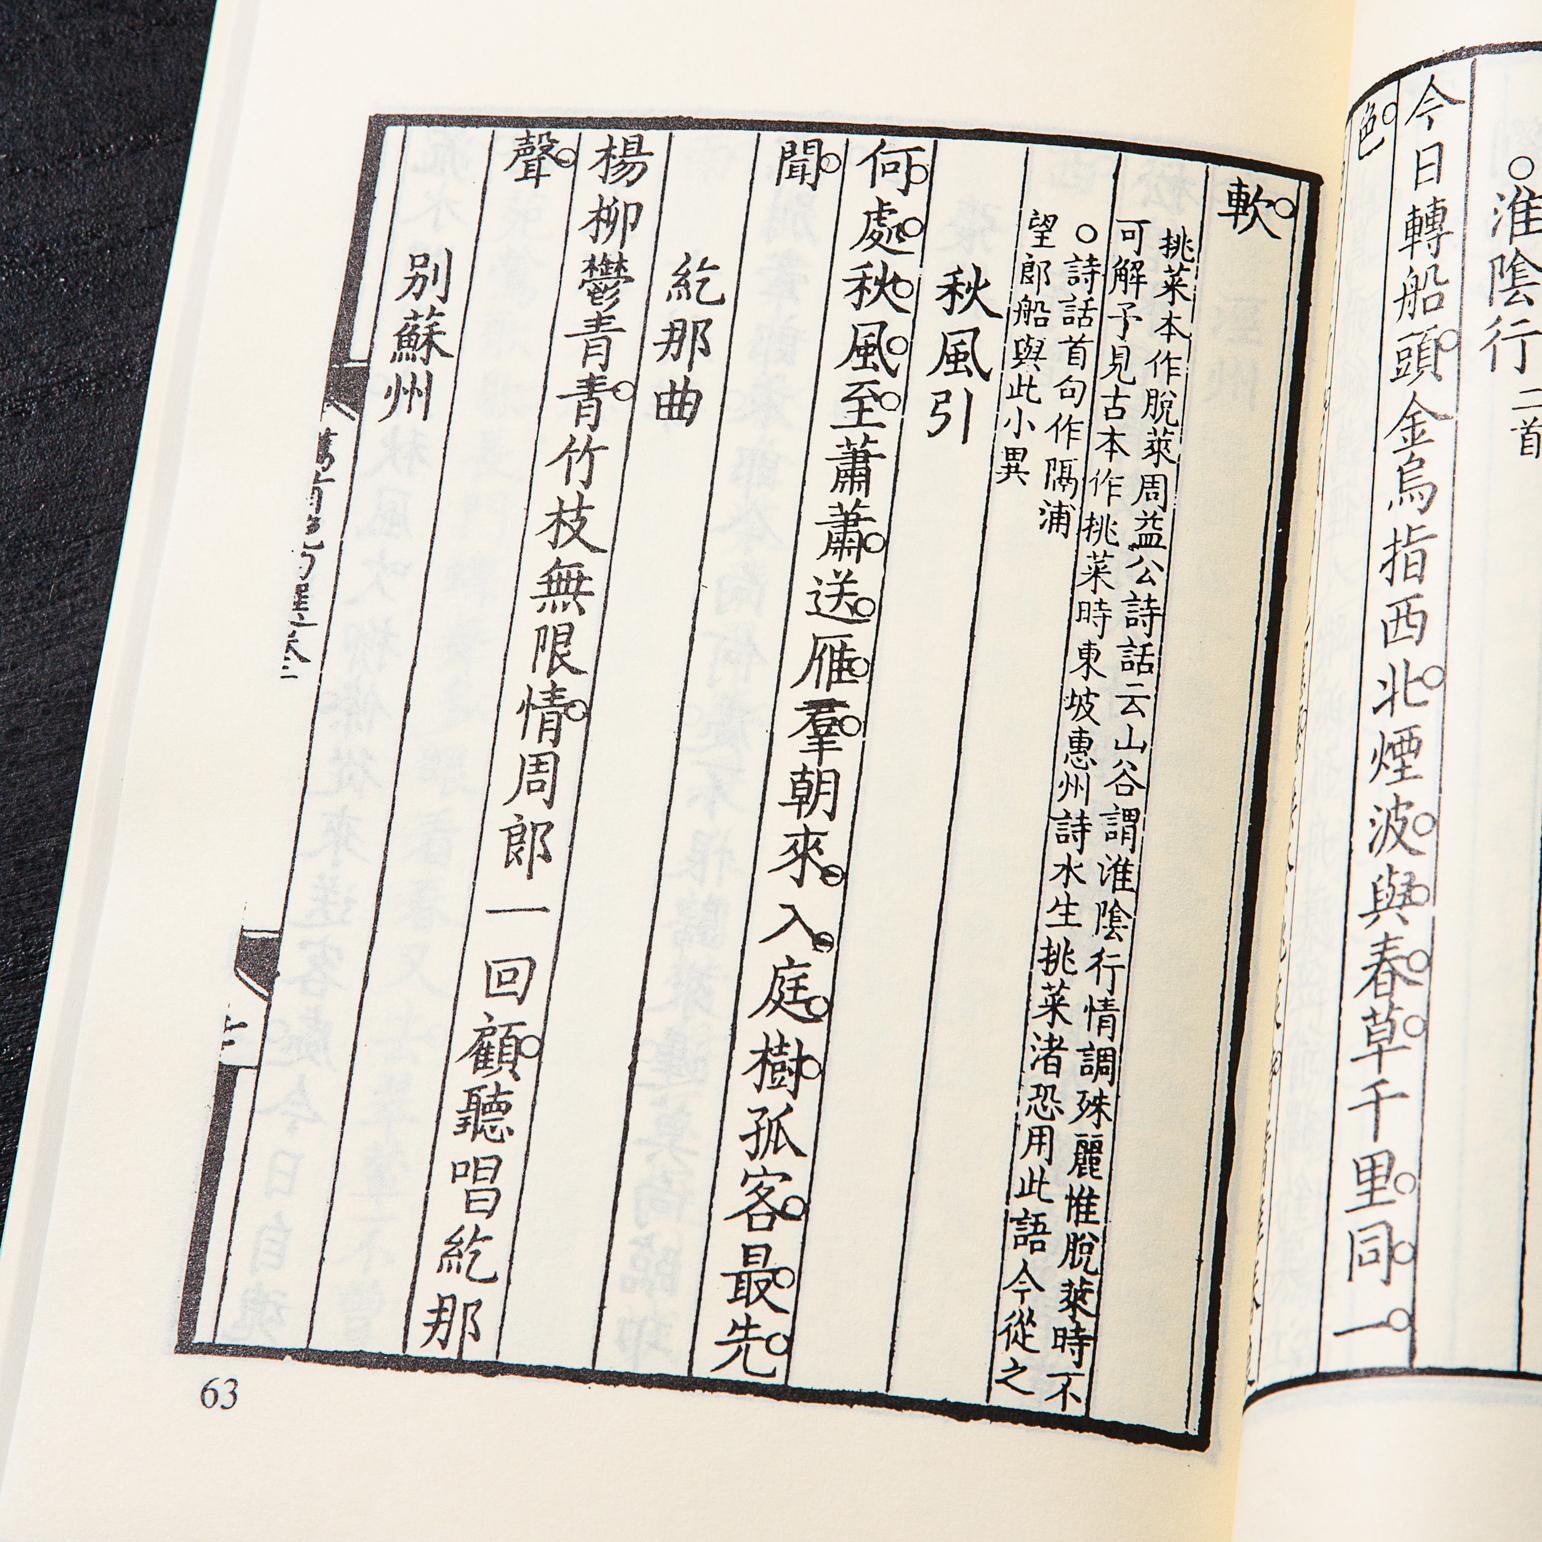 ○淮陰行二首
今日轉船頭金烏指西北煙波與春草千里同一
色
軟
挑菜本作脫萊周益公詩話云山谷謂淮陰行情調殊麗惟脫萊時不
可解予見古本作挑菜時東坡惠州詩水生挑菜渚恐用此語今從之
○詩話首句作隔浦
望郎船與此小異
秋風引
何處秋風至蕭蕭送雁羣朝來入庭樹孤客最先
聞
紇那曲
楊柳鬱青青竹枝無限情周郎一回顧聽唱紇那
聲
別蘇州
63